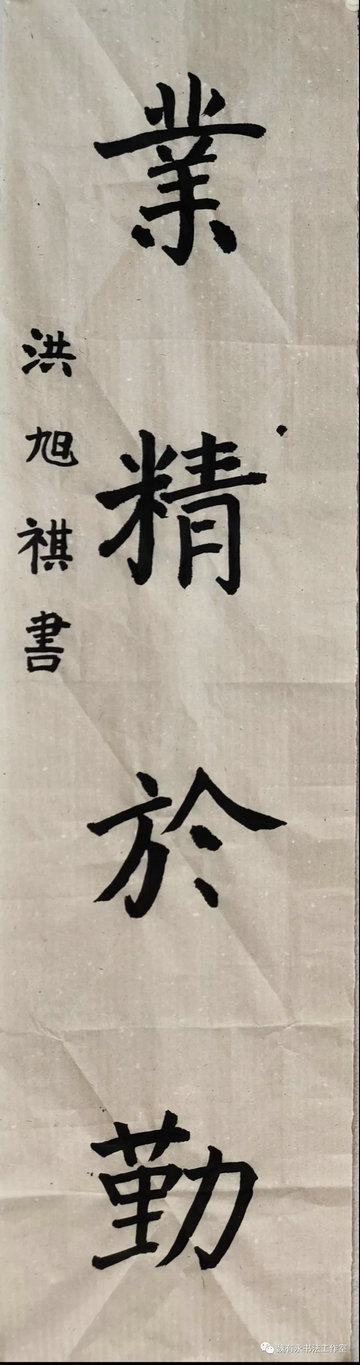 業精於勤
洪旭祺書
魏有永书法工作室